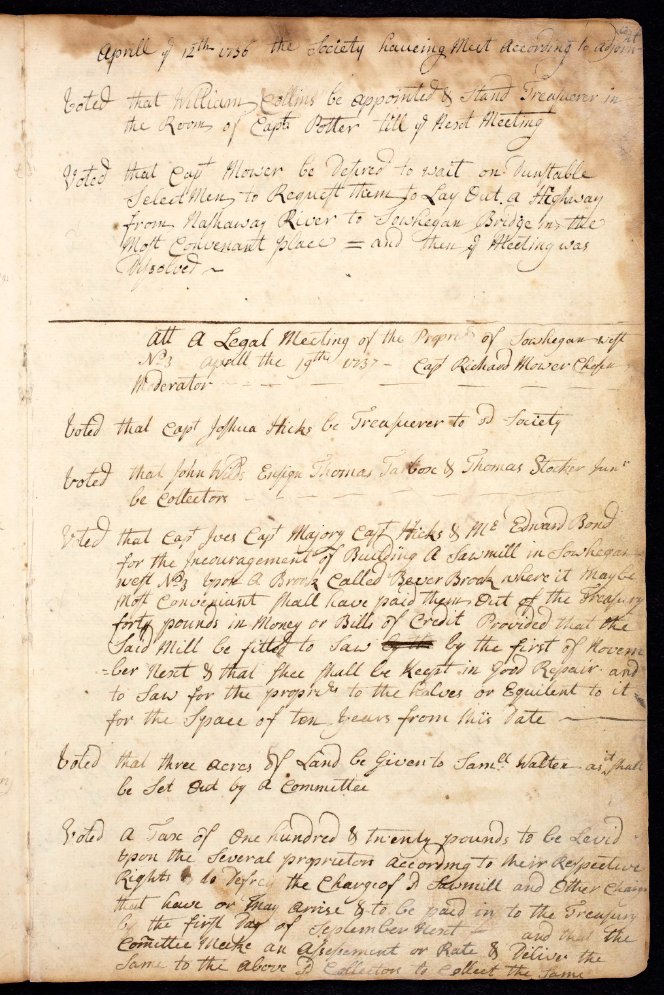 Aprill ye 12th 1736 the Society haveing Meet According to adjorn
ment
Voted that William Collins be appointed & Stand Treasuerer in
the Room of Capt Potter till ye Next Meeting
Voted that Capt Mower be Desired to wait on Dunstable
Select Men to Request them to Lay Out a Highway
from Nashaway River to Sowhegan Bridge in the
Most Convenant place = and then ye Meeting was
Dissolved ~
Att A Legal Meeting of the Propriets of Sowhegan west
No 3 Aprill the 19th 1737 - Capt Richard Mower Chosen
Moderator
Voted that Capt Joshua Hicks be Treasuerer to sd Society
Voted that John Wills Ensign Thomas Tarbox & Thomas Stocker Junr
be Collectors
Voted that Capt Ives Capt Majory Capt Hicks & Mr Edward Bond
for the Incouragement of Building A Sawmill in Sowhegan
west No 3 Upon A Brook Called Bever Brook where it may be
Most Conveniant shall have paid them Out of the Treasury
forty pounds in Money or Bills of Credit Provided that the
Said Mill be fitted to Saw by the first of Novem
=ber Next & that shee shall be Keept in Good Repair and
to Saw for the proprs to the halves or Equilent to it
for the Space of ten years from this Date
Voted that three acres of Land be Given to Samll Walten as it shall
be Set Out by a Committee
Voted A Tax of One hundred & twenty pounds to be Levid
Upon the Several proprietors according to their Respective
Rights to Defrey the Charge of sd Sawmill and Other Charges
that have or may arrise & to be paid in to the Treasury
by the first Day of September Next and that the
Comittee Meeke an Assesement or Rate & Deliver the
Same to the above sd Collectors to Collect the Same